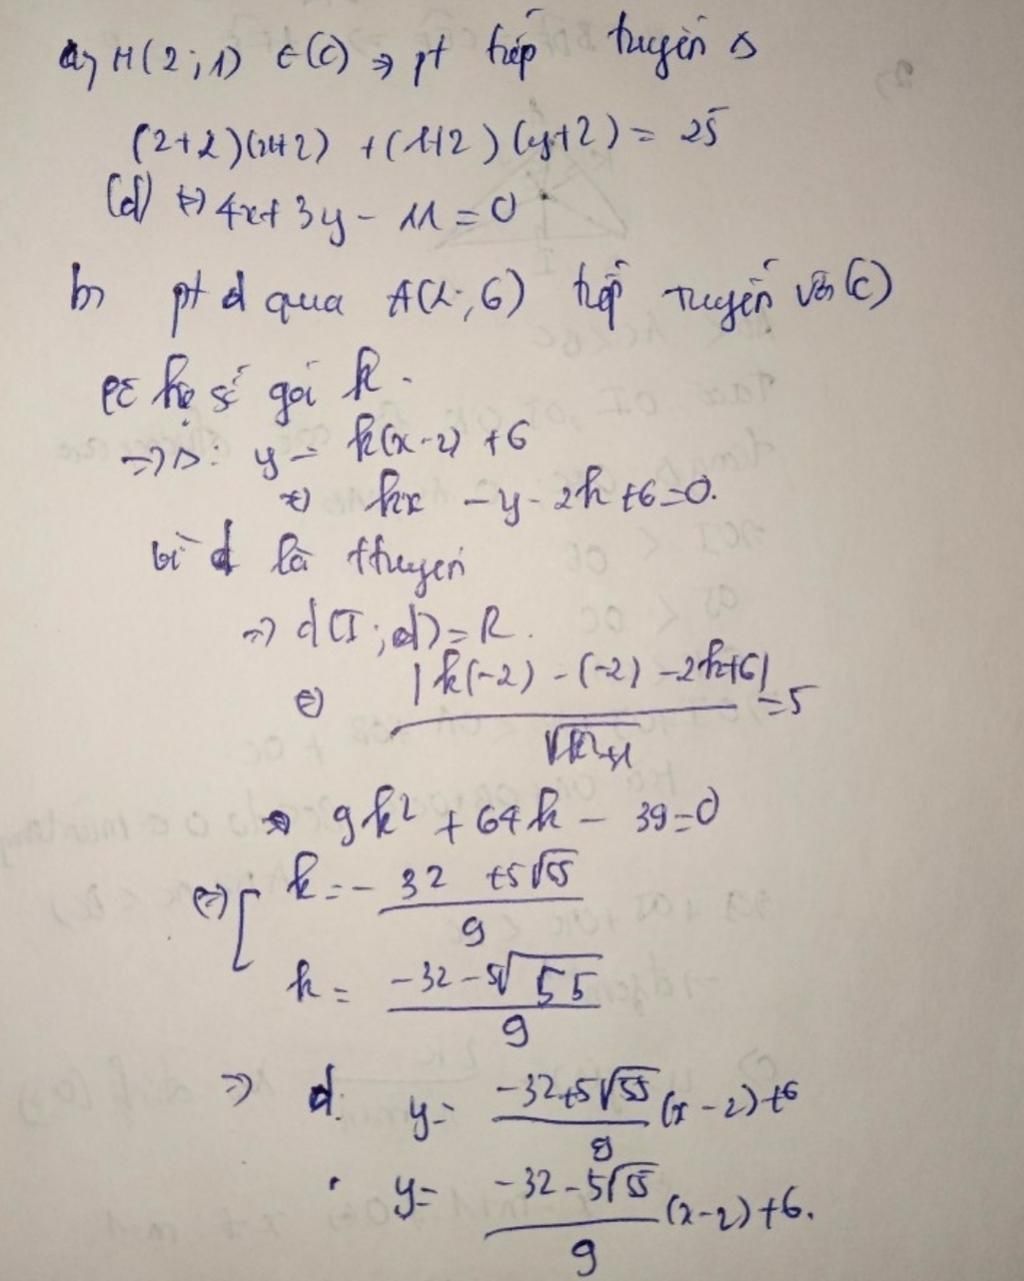 a, M(2;1) ∈ (C) ⇒ pt tiếp tuyến Δ
(2+2)(x+2) + (1+2)(y+2) = 25
(d) ⇔ 4x + 3y - 11 = 0
b, pt d qua A(2;6) tiếp tuyến với (C)
có hệ số góc k.
⇒ Δ: y = k(x-2) + 6
⇔ kx - y - 2k + 6 = 0.
vì d là ttuyến
⇒ d(I;d) = R.
⇔ |k(-2) - (-2) - 2k + 6| / √(k²+1) = 5
⇔ 9k² + 64k - 39 = 0
⇔ [ k = - 32 + 5√55 / 9
k = -32 - 5√55 / 9
⇒ d: y = -32 + 5√55 / 9 (x-2) + 6
y = -32 - 5√55 / 9 (x-2) + 6.